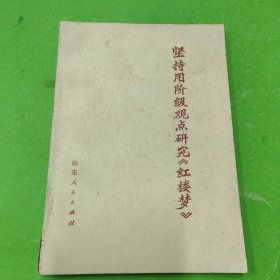 坚持用阶级观点研究《红楼梦》
山东人民出版社